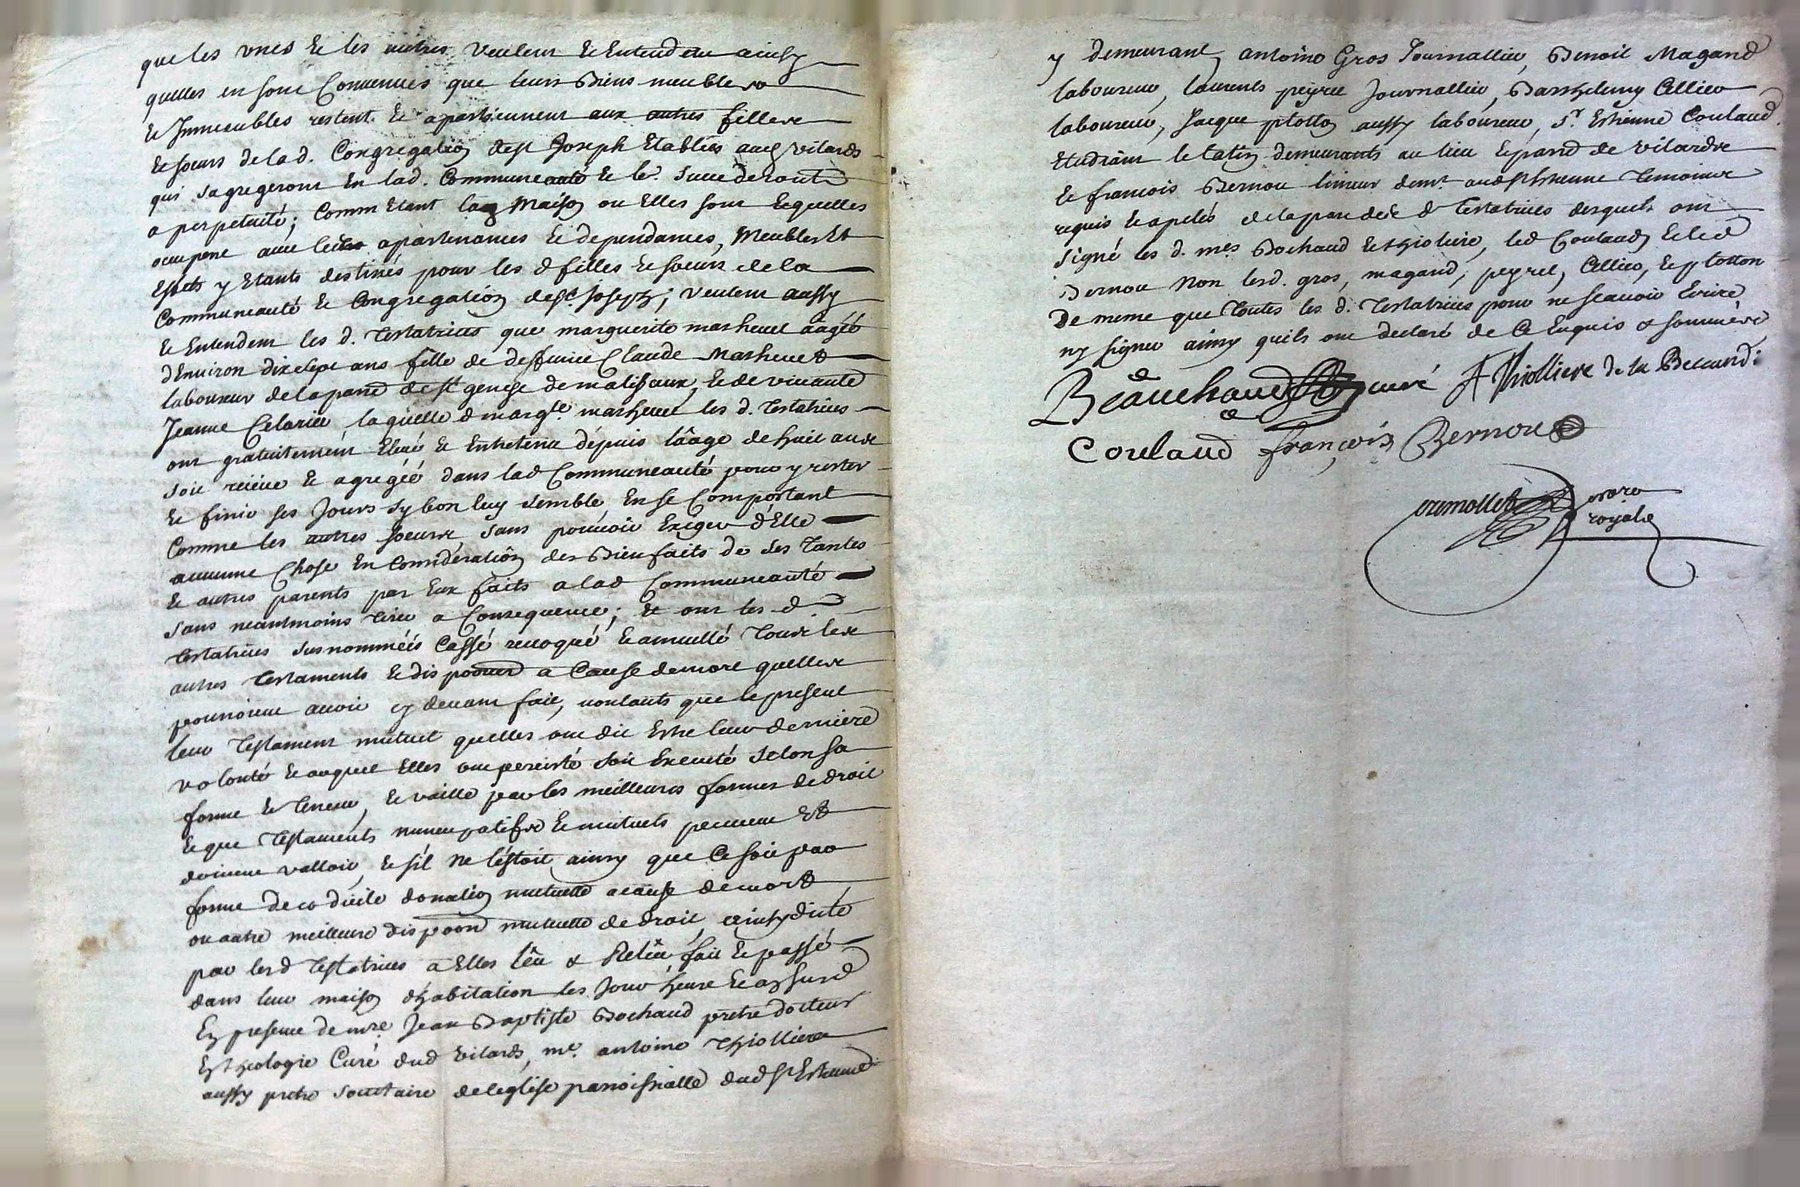 que les unes et les autres veulent et entendent ainsy
quelles en sont convenues que leurs biens meubles
et immeubles restent et apartiennent aux autres filles
et soeurs de lad. Congregation de st Joseph Etablies aud vilards
qui sagregeront en lad. Communeauté et le. succederont
a perpetuité; comm Etant la maison ou Elles sont lequelles
occupent avec les apartenances et dependances, Meubles Et
effets y Etants destinés pour les d filles et soeurs de la
Communeauté et Congregation de st. Joseph; veulent aussy
et Entendent les d. testatrices que marguerite marheuet âagéé
d'Environ dix sept ans fille de deffunct Claude Marheuet
laboureur de la parr de st genese de malifaux, et de vivante
Jeanne Celarier laquelle d marg.te marheuet les d. testatrices
ont gratuitement Elevé et Entretenu dépuis lâage de huit ans
soit reciüe et agrégéé dans lad Communeauté pour y rester
et finir ses jours sy bon luy semble, en se Comportant
Comme les autres soeurs, sans pouvoir Exiger d'Elle
aucunne Chose en Considération des Bienfaits de ses Tantes
et autres parents par Eux faits a lad Communeauté
sans neantmoins tirer a Consequence; Et ont les d
testatrices susnommées Cassé revoqué et annullé tous les
autres testaments et dispoons a Cause de mort quelles
pourroient avoir cy devant fait, voulants que le present
leur testament mutuel quelles ont dit Estre leur derniere
volonté et auquel Elles ont persisté soit Executé selon sa
forme et teneur, et vaille par les meilleures formes de droit
et que testaments nuncupatifs et mutuels peuvent et
doivent valloir, et s'il ne l'éstoit ainsy que Ce soit par
forme de codicile donation mutuelle a cause de mort
ou autre meilleure dispoon mutuelle de droit, ainsy dicté
par lesd testatrices a Elles lêu & Relêu fait et passé
dans leur maison d'habitation les jour heure et an susd
En presence de mre. Jean Baptiste Bochaud pretre docteur
En theologie Curé dud vilards, me. antoine thiolliere
aussy pretre societaire de leglise parroissialle dud st Estienne
y demeurant antoine Gros Journallier, Benoit Magand
laboureur, laurents peyret Journallier, Barthelemy Cellier
laboureur, Jacque plotton aussy laboureur, sr. Estienne Coulaud
Etudiant le latin demeurants au lieu et parr de vilards
et francois Bernou limeur demt. aud st Estienne temoins
requis et apelés de la part desd testatrices desquels ont
signé les d. mes Bochaud et thioliere, led Coulaud et led
Bernou non lesd. gros, magand, peyret, Cellier, et plotton
De meme que toutes les d. testatrices pour ne scavoir Ecrire
ny signer ainsy quils ont declaré de Ce Enquis & sommés
Beauchaud curé A Thiolliere de la
Coulaud françois Bernou
no.re
royal